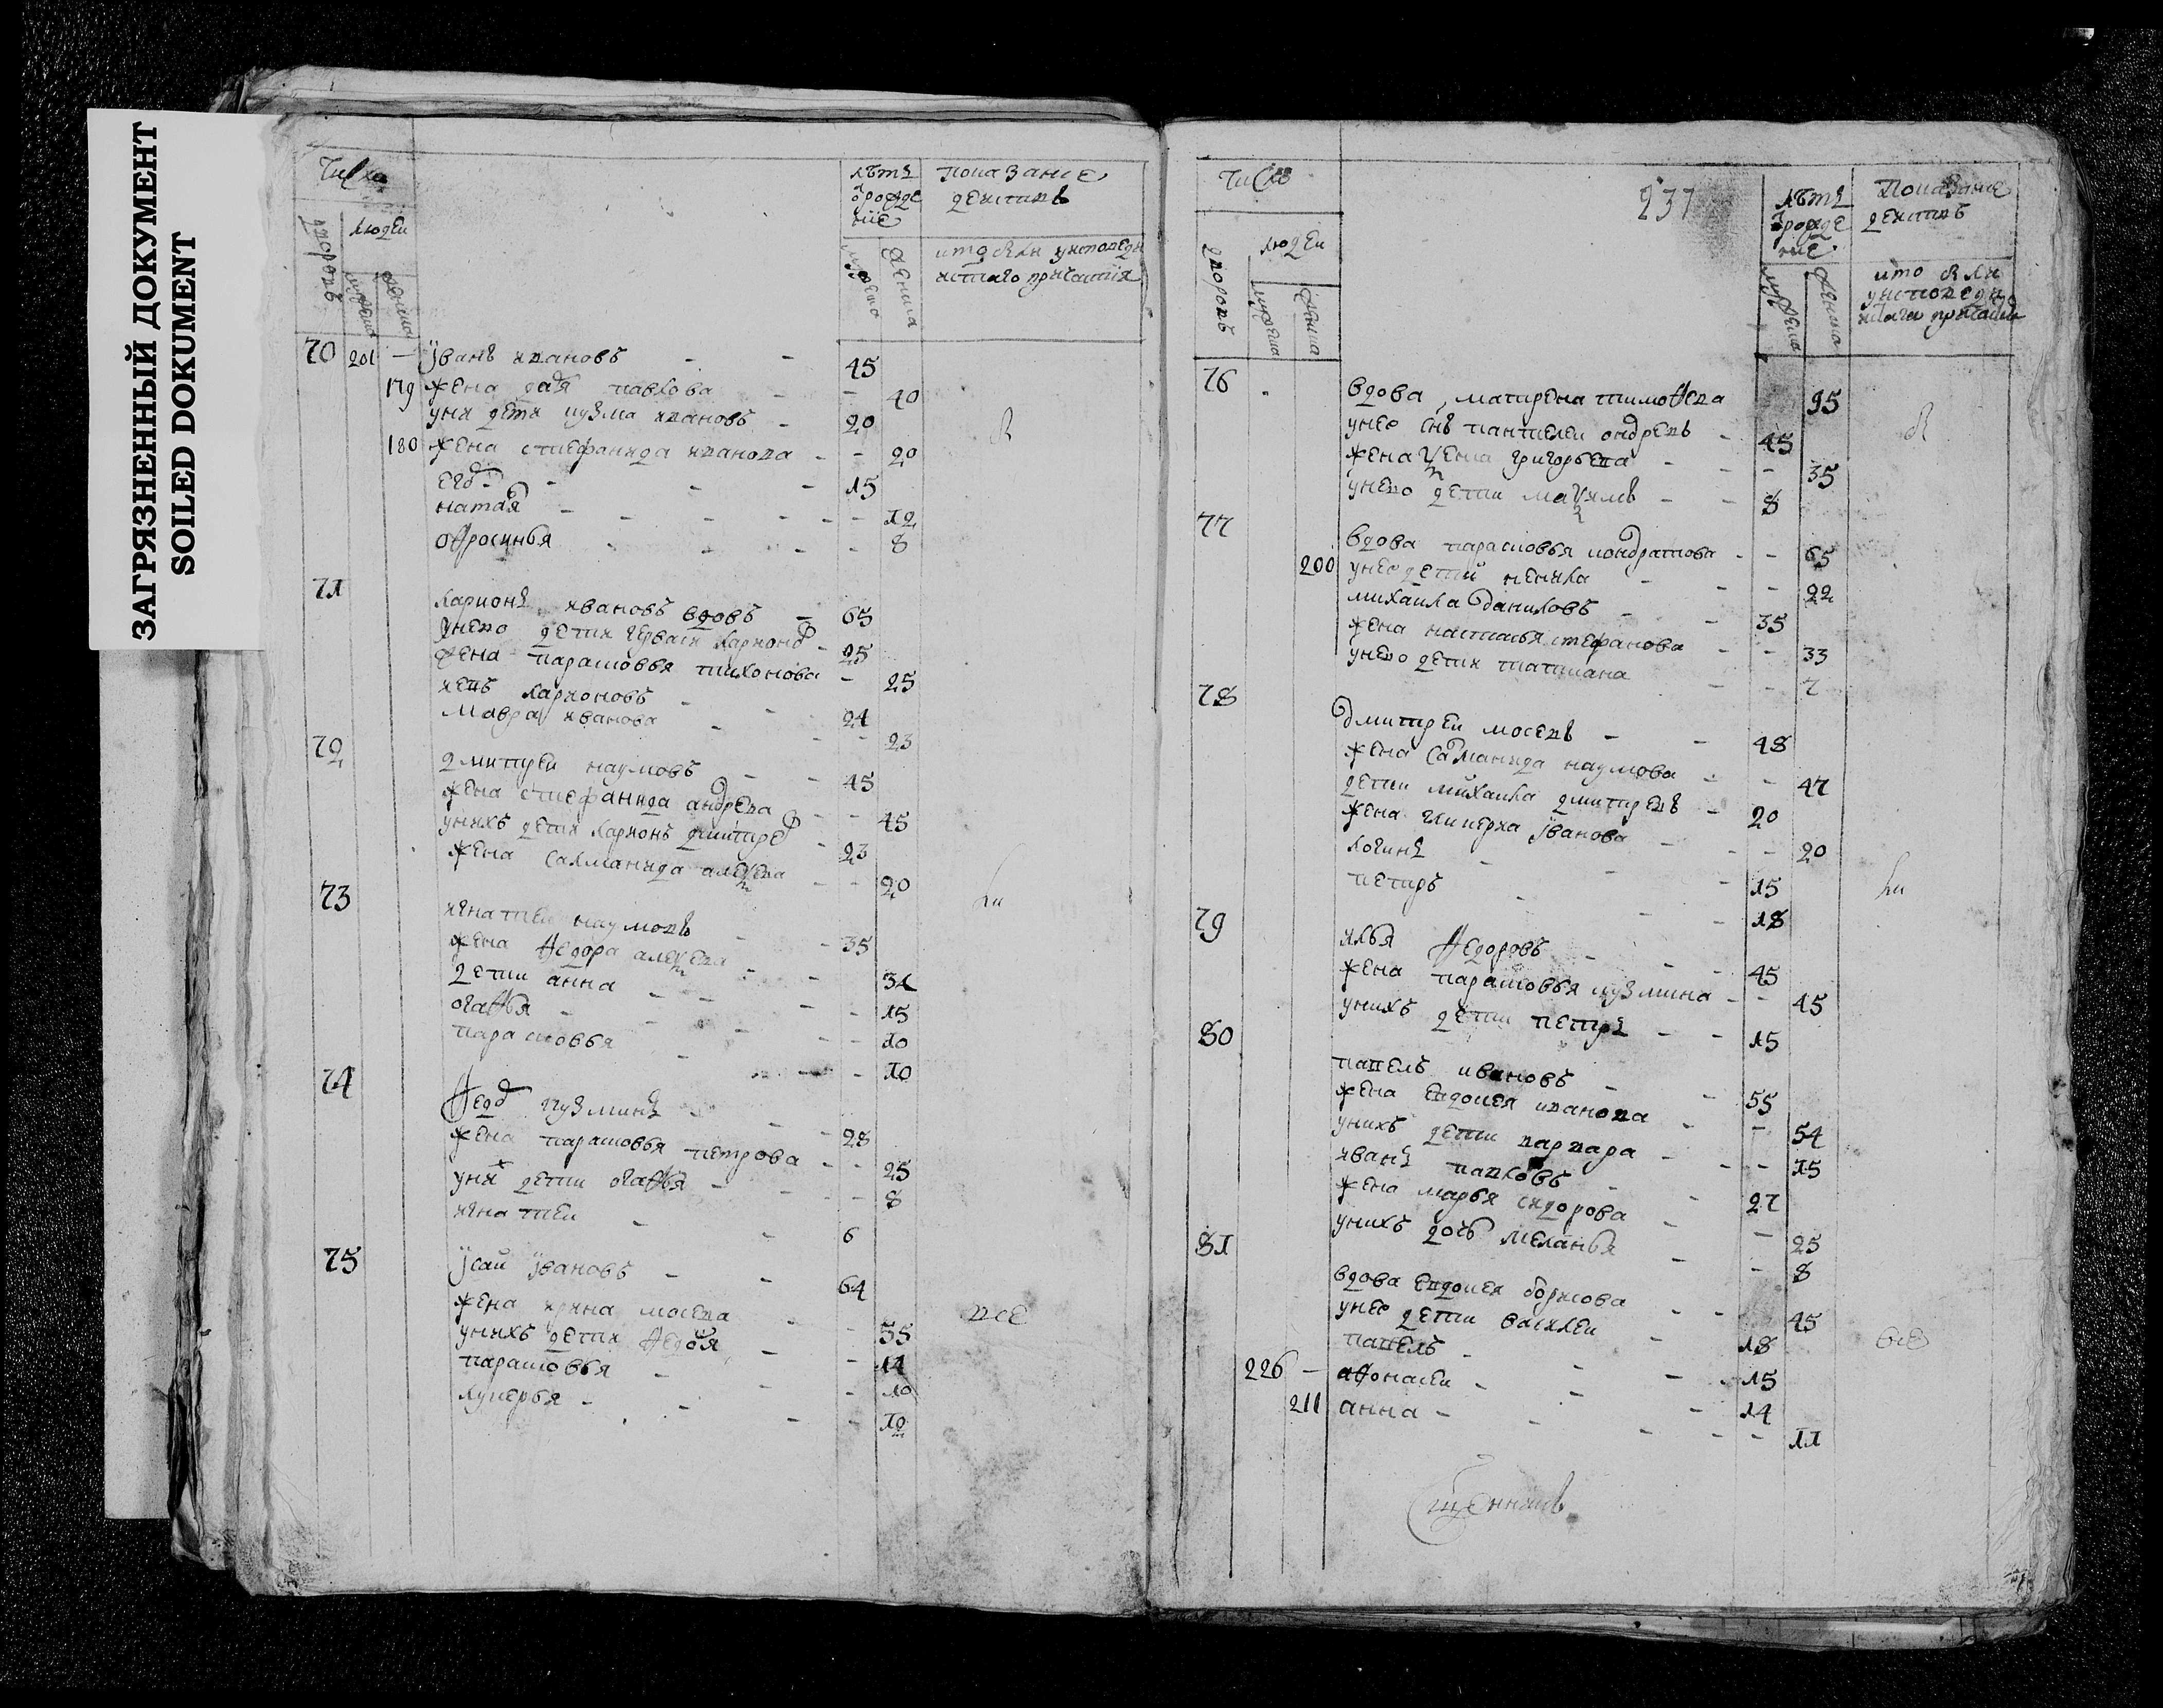 ЗАГРЯЗНЕННЫЙ ДОКУМЕНТ
SOILED DOKUMENT
Число
дворовъ
людеи
мужеска
женска
лѣтъ
Ѿ рожде
ние
мужеска
женска
показание
действъ
кто былъ уисповеди
истаго причастия
70 201 - Їванъ ивановъ - - 45
179 жена дарья павлова - 40
уни дети кузма ивановъ - 20
180 жена стефанида иванова - - 20
егоръ - - - 15
наталя - - - - - 12
оѳросинья - - - - 8
71
ларионъ ивановъ вдовъ - 65
унево дети герваси ларионов - 25
жена парасковья тихонова - 25
иевъ ларионовъ - - 24
мавра иванова - - - 23
72
дмитреи наумовъ - - 45
жена стефанида андрева - - 45
унихъ дети ларионъ дмитрев - 23
жена саламанида алексева - - 20
73
игнатеи наумовъ - - 35
жена ѳедора алексева - - 31
дети анна - - - 15
огаѳья - - - - 10
парасковья - - - 10
74
ѳедоръ кузминъ - - - 28
жена парасковья петрова - - 25
уних дети огаѳья - - - 8
игнатеи - - 6
75
Їсаи Ївановъ - - 64
жена ирина мосева - - 55
унихъ дети ѳедося - - 14
парасковья - - - 10
лукерья - - - - 10
все
Число
237
дворовъ
людеи
мужеска
женска
лѣтъ
Ѿ рожде
ние
мужеска
женска
Показание
действъ
кто былъ
уисповеди
истаго причастия
76
вдова матрена тимоѳева 95
унее снъ пантелеи ондревъ - 45
жена ксенія григорьева - - - 35
унево дети максимъ - - 8
77
вдова парасковья кондратова - - 65
200 унее дети
михаила даниловъ - - 35
жена настасья стефанова - - 33
унево дети татиана - - 7
78
дмитреи мосевъ - - 48
жена саламанида наумова - - 47
дети михаила дмитревъ - 20
жена гликерия Їванова - - - 20
логинъ - - 15
петръ - - - 18
79
илья ѳедоровъ - - - 45
жена парасковья кузмина - - 45
унихъ дети петръ - - 15
80
павелъ ивановъ - - 55
жена евдокея иванова - - 54
унихъ дети варвара - - - 15
иванъ павловъ - - 27
жена марья сидорова - - 25
унихъ дочь меланья - - 8
81
вдова евдокея борисова - - 45
унее дети василеи - 18
павелъ - - - 15
226 - аѳонасеи - - - 14
211 анна - - - - - 11
все